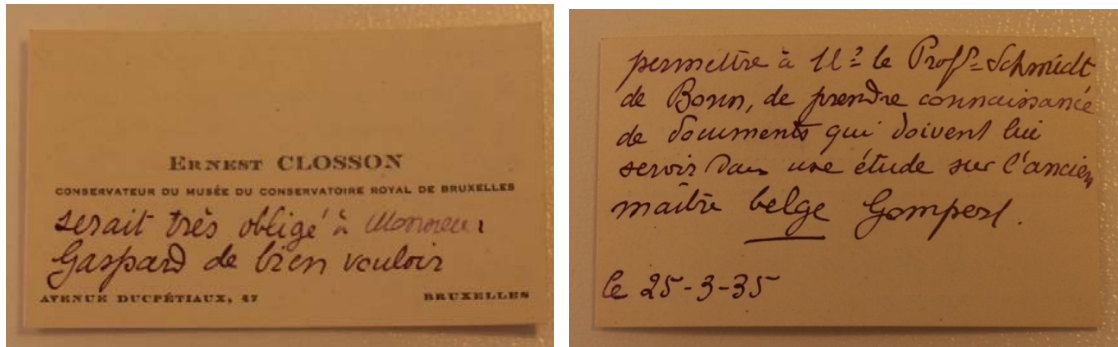 ERNEST CLOSSON
CONSERVATEUR DU MUSÉE DU CONSERVATOIRE ROYAL DE BRUXELLES
serait très obligé à Monsieur
Gaspard de bien vouloir
AVENUE DUCPÉTIAUX, 47
BRUXELLES
permettre à Mr le Profr Schmidt
de Bonn, de prendre connaissance
de documents qui doivent lui
servir dans une étude sur l'ancien
maître belge Gompert.
le 25-3-35